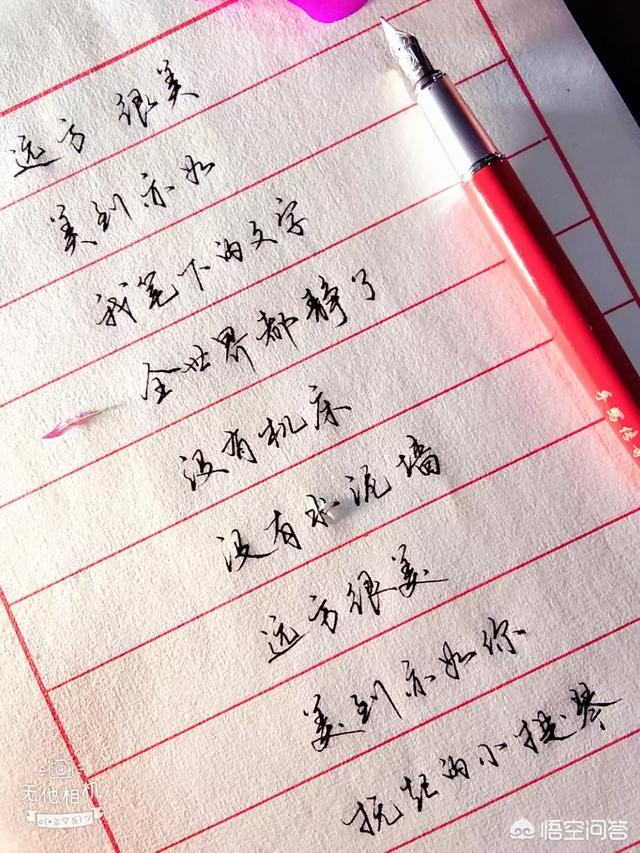 远方 很美
美到亦如
我笔下的文字
全世界都静了
没有机床
没有水泥墙
远方很美
美到亦如你
抚起的小提琴
无他相机
悟空问答